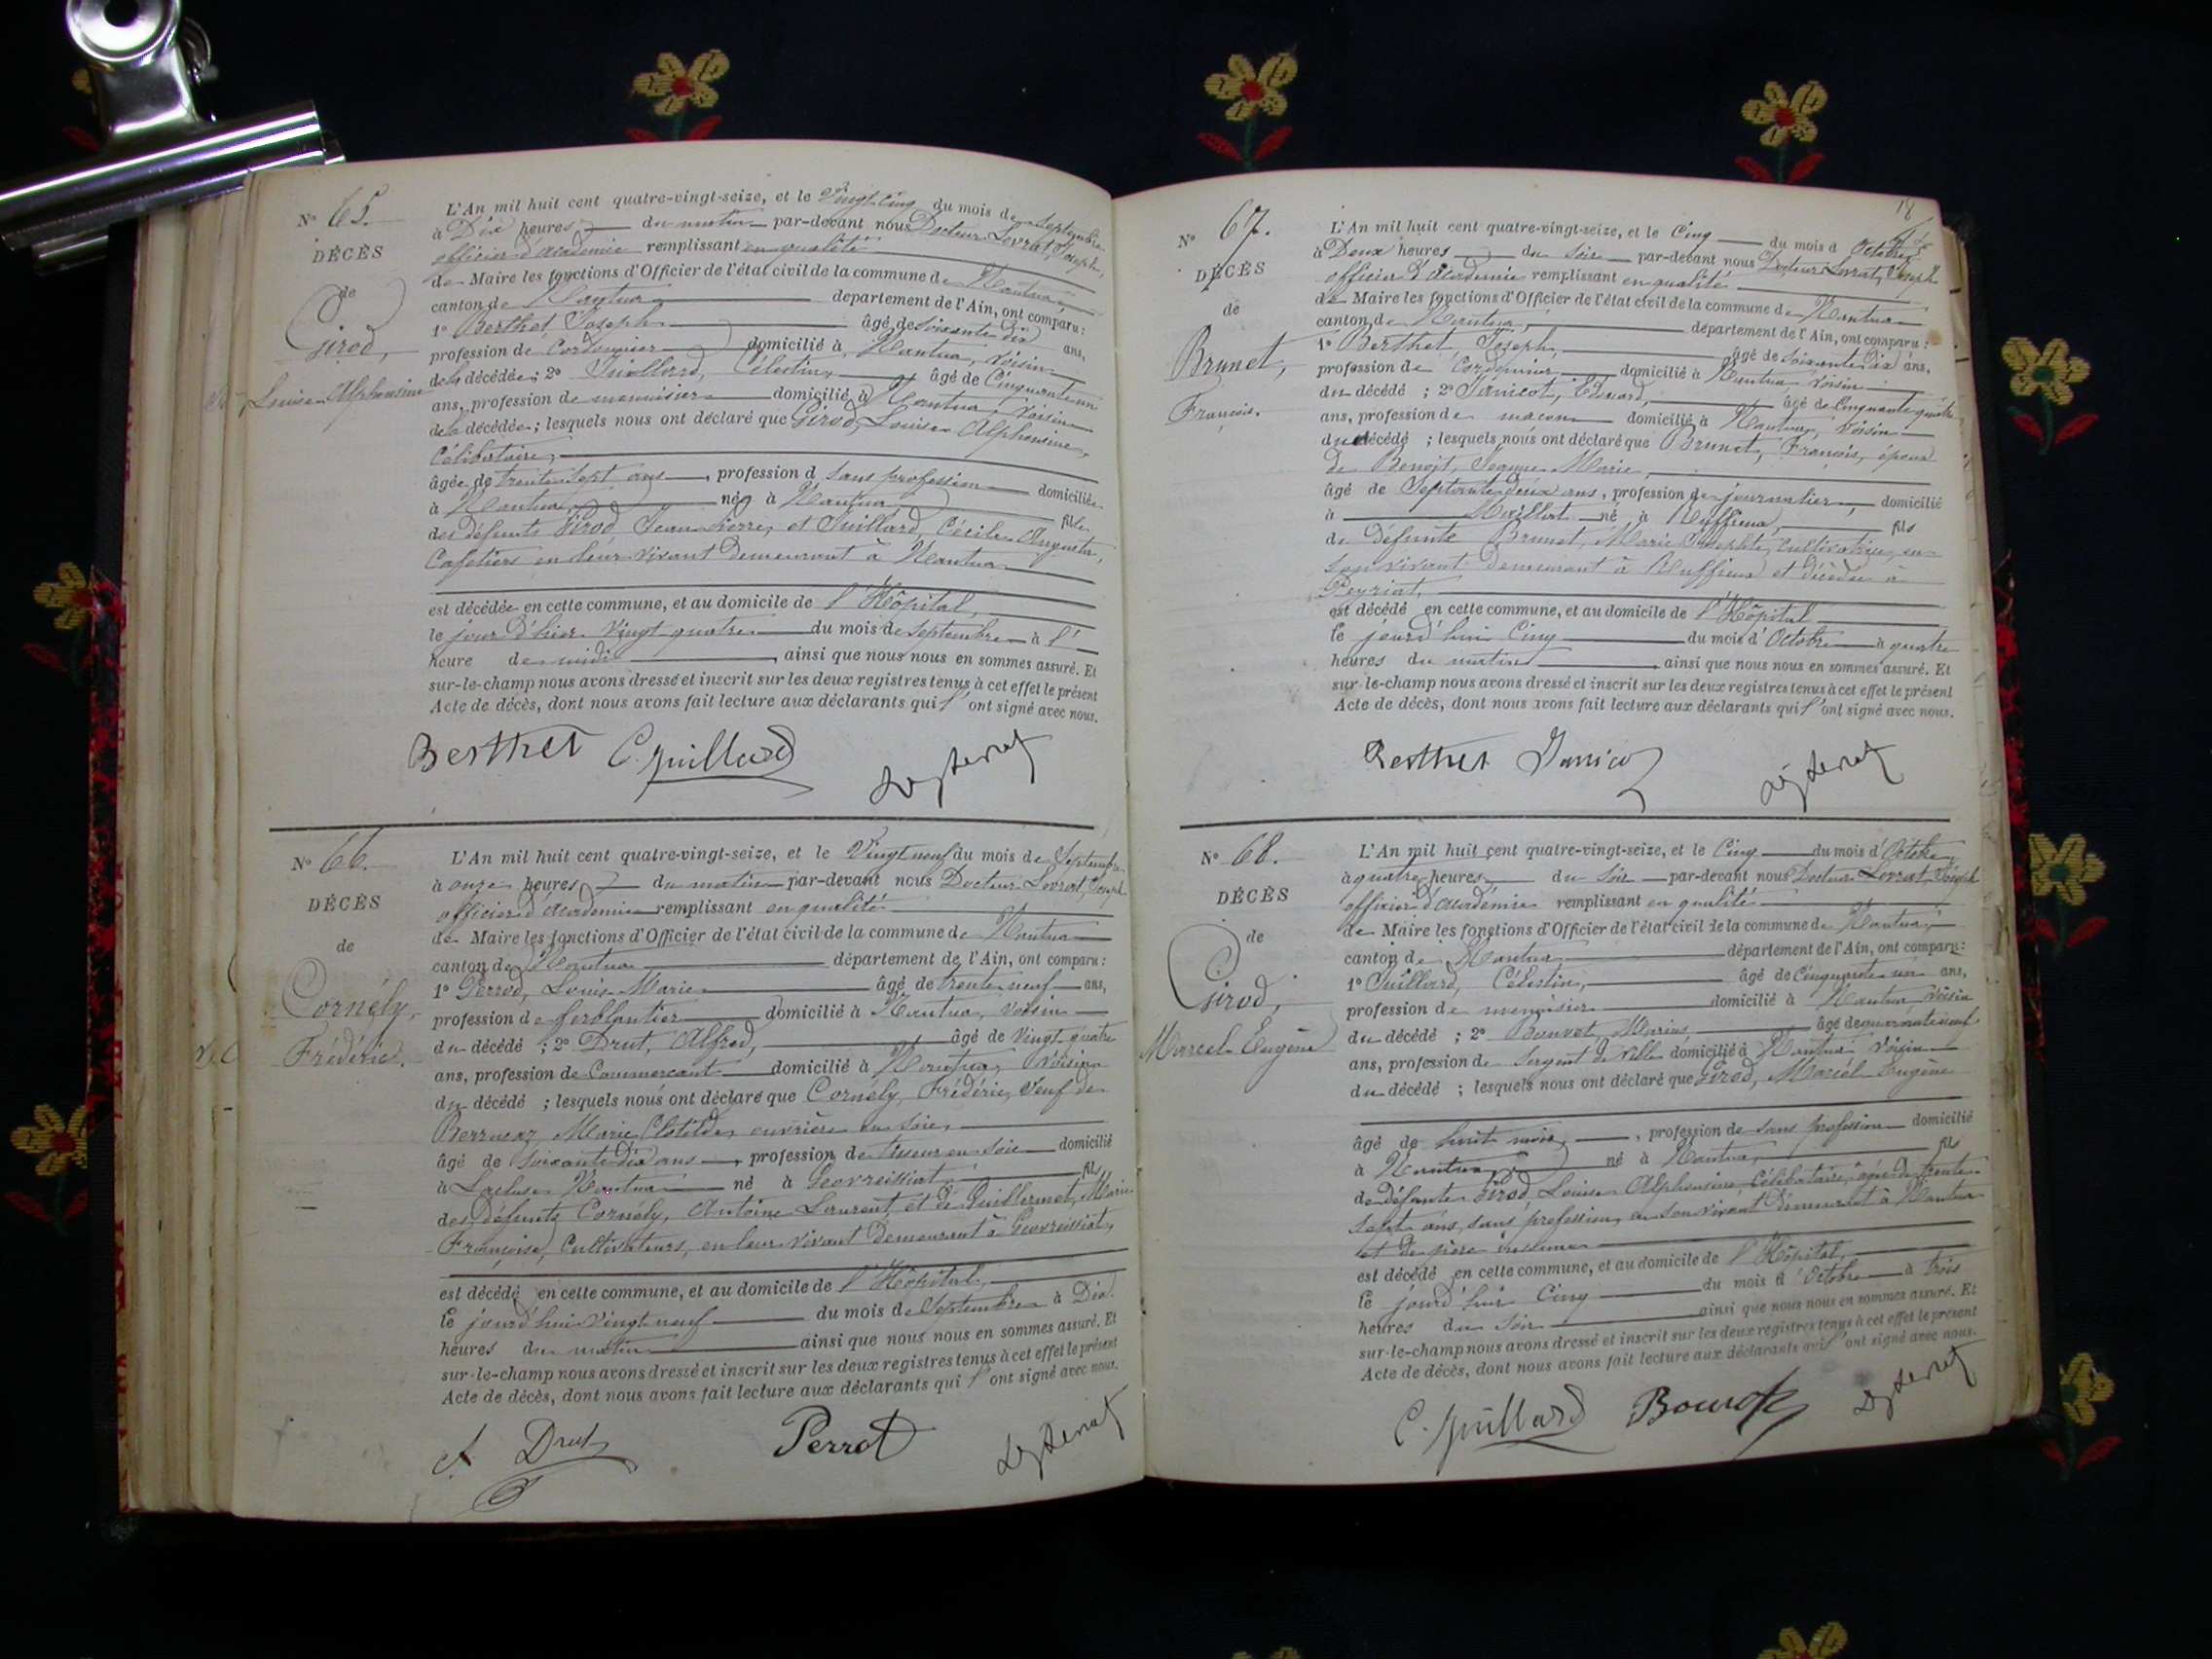 N° 65.
DÉCÈS
de
Girod,
Louise Alphonsine
L'An mil huit cent quatre-vingt-seize, et le Vingt Cinq du mois de Septembre
à Dix heures du matin par-devant nous Docteur Levrat, Joseph,
officier d'académie remplissant en qualité
de Maire les fonctions d'Officier de l'état civil de la commune de Nantua
canton de Nantua département de l'Ain, ont comparu :
1° Berthet Joseph âgé de Soixante dix ans,
profession de Cordonnier domicilié à Nantua, voisin
de la décédée ; 2° Juillard, Célestin, âgé de Cinquante un
ans, profession de menuisier domicilié à Nantua, voisin
de la décédée ; lesquels nous ont déclaré que Girod, Louise Alphonsine,
Célibataire,
âgée de trente sept ans, profession d sans profession domiciliée
à Nantua, née à Nantua, fille
des défunts Girod Jean Pierre, et Juillard, Cécile Augusta,
Cafetiers en leur vivant demeurant à Nantua
est décédée en cette commune, et au domicile de l'Hôpital,
le jour d'hier Vingt quatre du mois de Septembre à l'
heure de midi, ainsi que nous nous en sommes assuré. Et
sur-le-champ nous avons dressé et inscrit sur les deux registres tenus à cet effet le présent
Acte de décès, dont nous avons fait lecture aux déclarants qui l'ont signé avec nous.
Berthet C. Juillard
N° 66.
DÉCÈS
de
Cornély,
Frédéric.
L'An mil huit cent quatre-vingt-seize, et le Vingt neuf du mois de Septembre
à onze heures du matin par-devant nous Docteur Levrat, Joseph
officier d'académie remplissant en qualité
de Maire les fonctions d'Officier de l'état civil de la commune de Nantua
canton de Nantua département de l'Ain, ont comparu :
1° Perrod, Louis Marie âgé de trente neuf ans,
profession de ferblantier domicilié à Nantua, voisin
du décédé ; 2° Drut, Alfred, âgé de Vingt quatre
ans, profession de Commerçant domicilié à Nantua, voisin
du décédé ; lesquels nous ont déclaré que Cornély, Frédéric, veuf de
Marie Clotilde, ouvrière en soie,
âgé de soixante dix ans, profession de tisseur en soie domicilié
à Lacluse Nantua né à Geovreissiat, fils
des défunts Cornély, Antoine Laurent, et de Guillermet, Marie
Françoise, Cultivateurs, en leur vivant demeurant à Geovreissiat,
est décédé en cette commune, et au domicile de l'Hôpital,
le jourd'hui Vingt neuf du mois de Septembre à Dix
heures du matin ainsi que nous nous en sommes assuré. Et
sur-le-champ nous avons dressé et inscrit sur les deux registres tenus à cet effet le présent
Acte de décès, dont nous avons fait lecture aux déclarants qui l'ont signé avec nous.
A Drut Perrod
N° 67.
DÉCÈS
de
Brunet,
François.
L'An mil huit cent quatre-vingt-seize, et le Cinq du mois d'Octobre
à Deux heures du soir par-devant nous Docteur Levrat, Joseph
officier d'académie remplissant en qualité
de Maire les fonctions d'Officier de l'état civil de la commune de Nantua
canton de Nantua, département de l'Ain, ont comparu :
1° Berthet, Joseph, âgé de Soixante Dix ans,
profession de Cordonnier domicilié à Nantua, voisin
du décédé ; 2° Janicot, Edouard, âgé de Cinquante quatre
ans, profession de macon domicilié à Nantua, voisin
du décédé ; lesquels nous ont déclaré que Brunet, François, époux
de Benoit, Jeanne Marie,
âgé de Septante deux ans, profession de journalier, domicilié
à Maillat né à Ruffieu, fils
de défunte Brunet, Marie Josephte, Cultivatrice, en
son vivant demeurant à Ruffieu et décédée à
Peyriat,
est décédé en cette commune, et au domicile de l'Hôpital
le jourd'hui Cinq du mois d'Octobre à quatre
heures du matin, ainsi que nous nous en sommes assuré. Et
sur-le-champ nous avons dressé et inscrit sur les deux registres tenus à cet effet le présent
Acte de décès, dont nous avons fait lecture aux déclarants qui l'ont signé avec nous.
Berthet Janicot
N° 68.
DÉCÈS
de
Girod,
Marcel Eugène
L'An mil huit cent quatre-vingt-seize, et le Cinq du mois d'Octobre,
à quatre heures du soir par-devant nous Docteur Levrat, Joseph
officier d'académie remplissant en qualité
de Maire les fonctions d'Officier de l'état civil de la commune de Nantua,
canton de Nantua, département de l'Ain, ont comparu :
1° Juillard, Célestin, âgé de Cinquante un ans,
profession de menuisier domicilié à Nantua voisin
du décédé ; 2° Marius, âgé de quarante neuf
ans, profession de Sergent de Ville domicilié à Nantua voisin
du décédé ; lesquels nous ont déclaré que Girod, Marcel Eugène
âgé de huit mois, profession de sans profession domicilié
à Nantua, né à Nantua, fils
de défunte Girod, Louise Alphonsine Célibataire, âgée de trente
sept ans, sans profession, en son vivant demeurant à Nantua
et de père inconnu
est décédé en cette commune, et au domicile de l'Hôpital
le jourd'hui Cinq du mois d'Octobre à trois
heures du soir ainsi que nous nous en sommes assuré. Et
sur-le-champ nous avons dressé et inscrit sur les deux registres tenus à cet effet le présent
Acte de décès, dont nous avons fait lecture aux déclarants qui l'ont signé avec nous.
C. Juillard